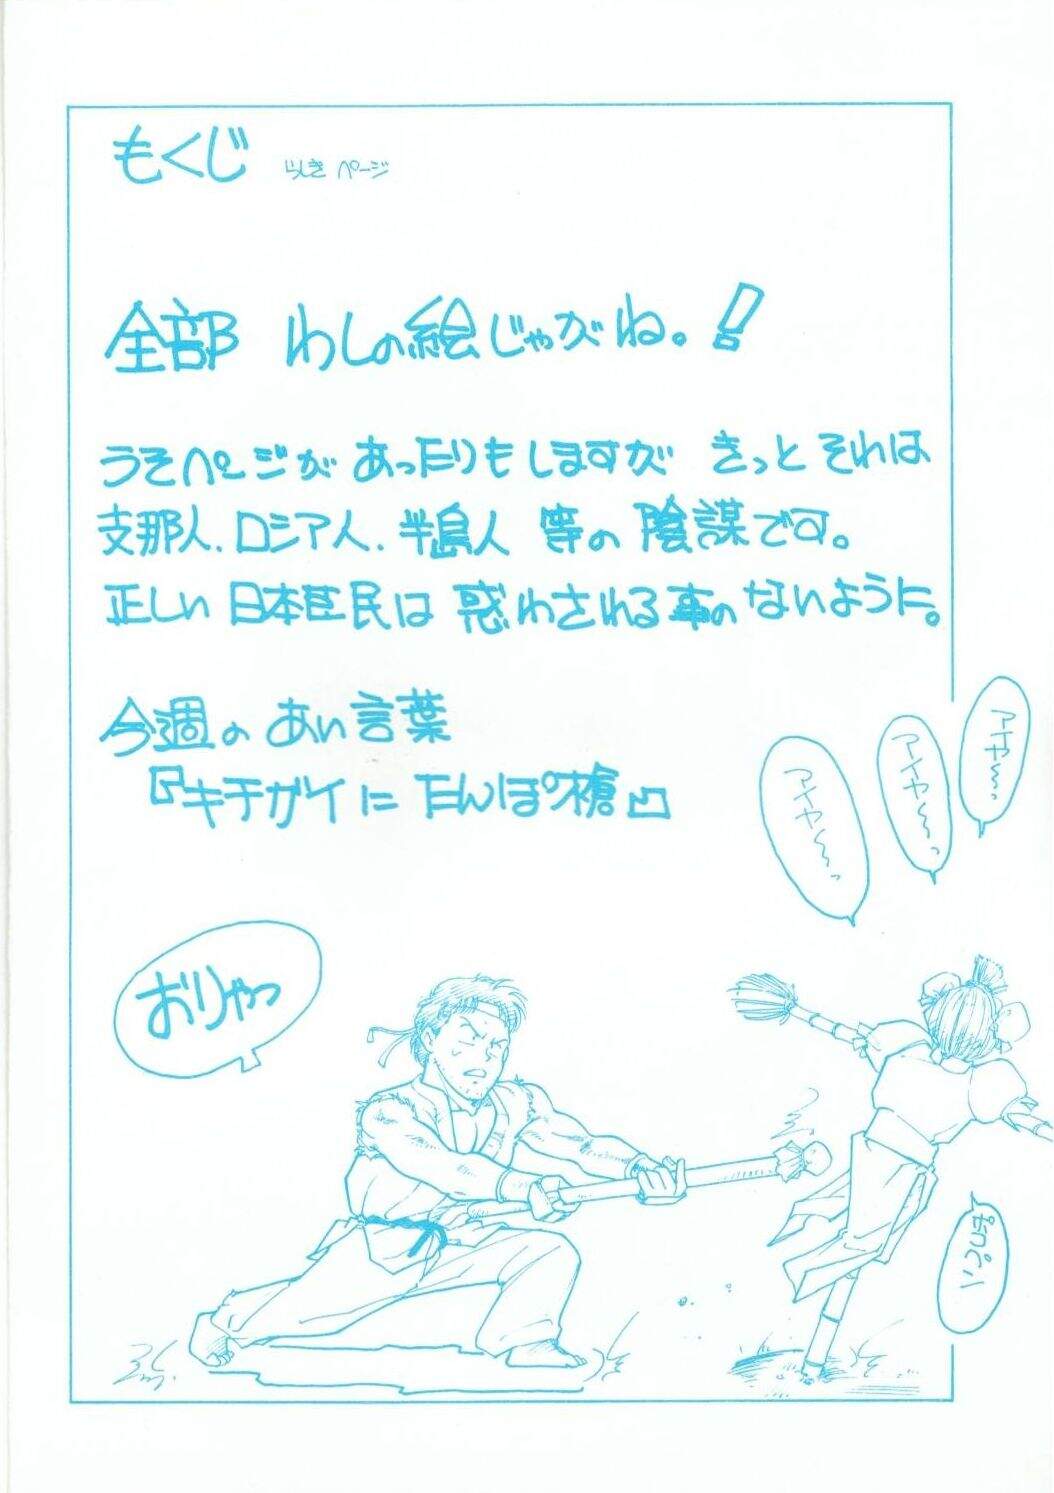 もくじ らしき ページ
全部 わしの絵じゃがね。!
うそページが あったりもしますが きっと それは
支那人、ロシア人、半島人 等の 陰謀です。
正しい 日本臣民は 惑わされる事の ないように。
今週の あい言葉
『キチガイに たんぽ槍』
アイヤ〜っ
アイヤ〜っ
アイヤ〜っ
おりゃっ